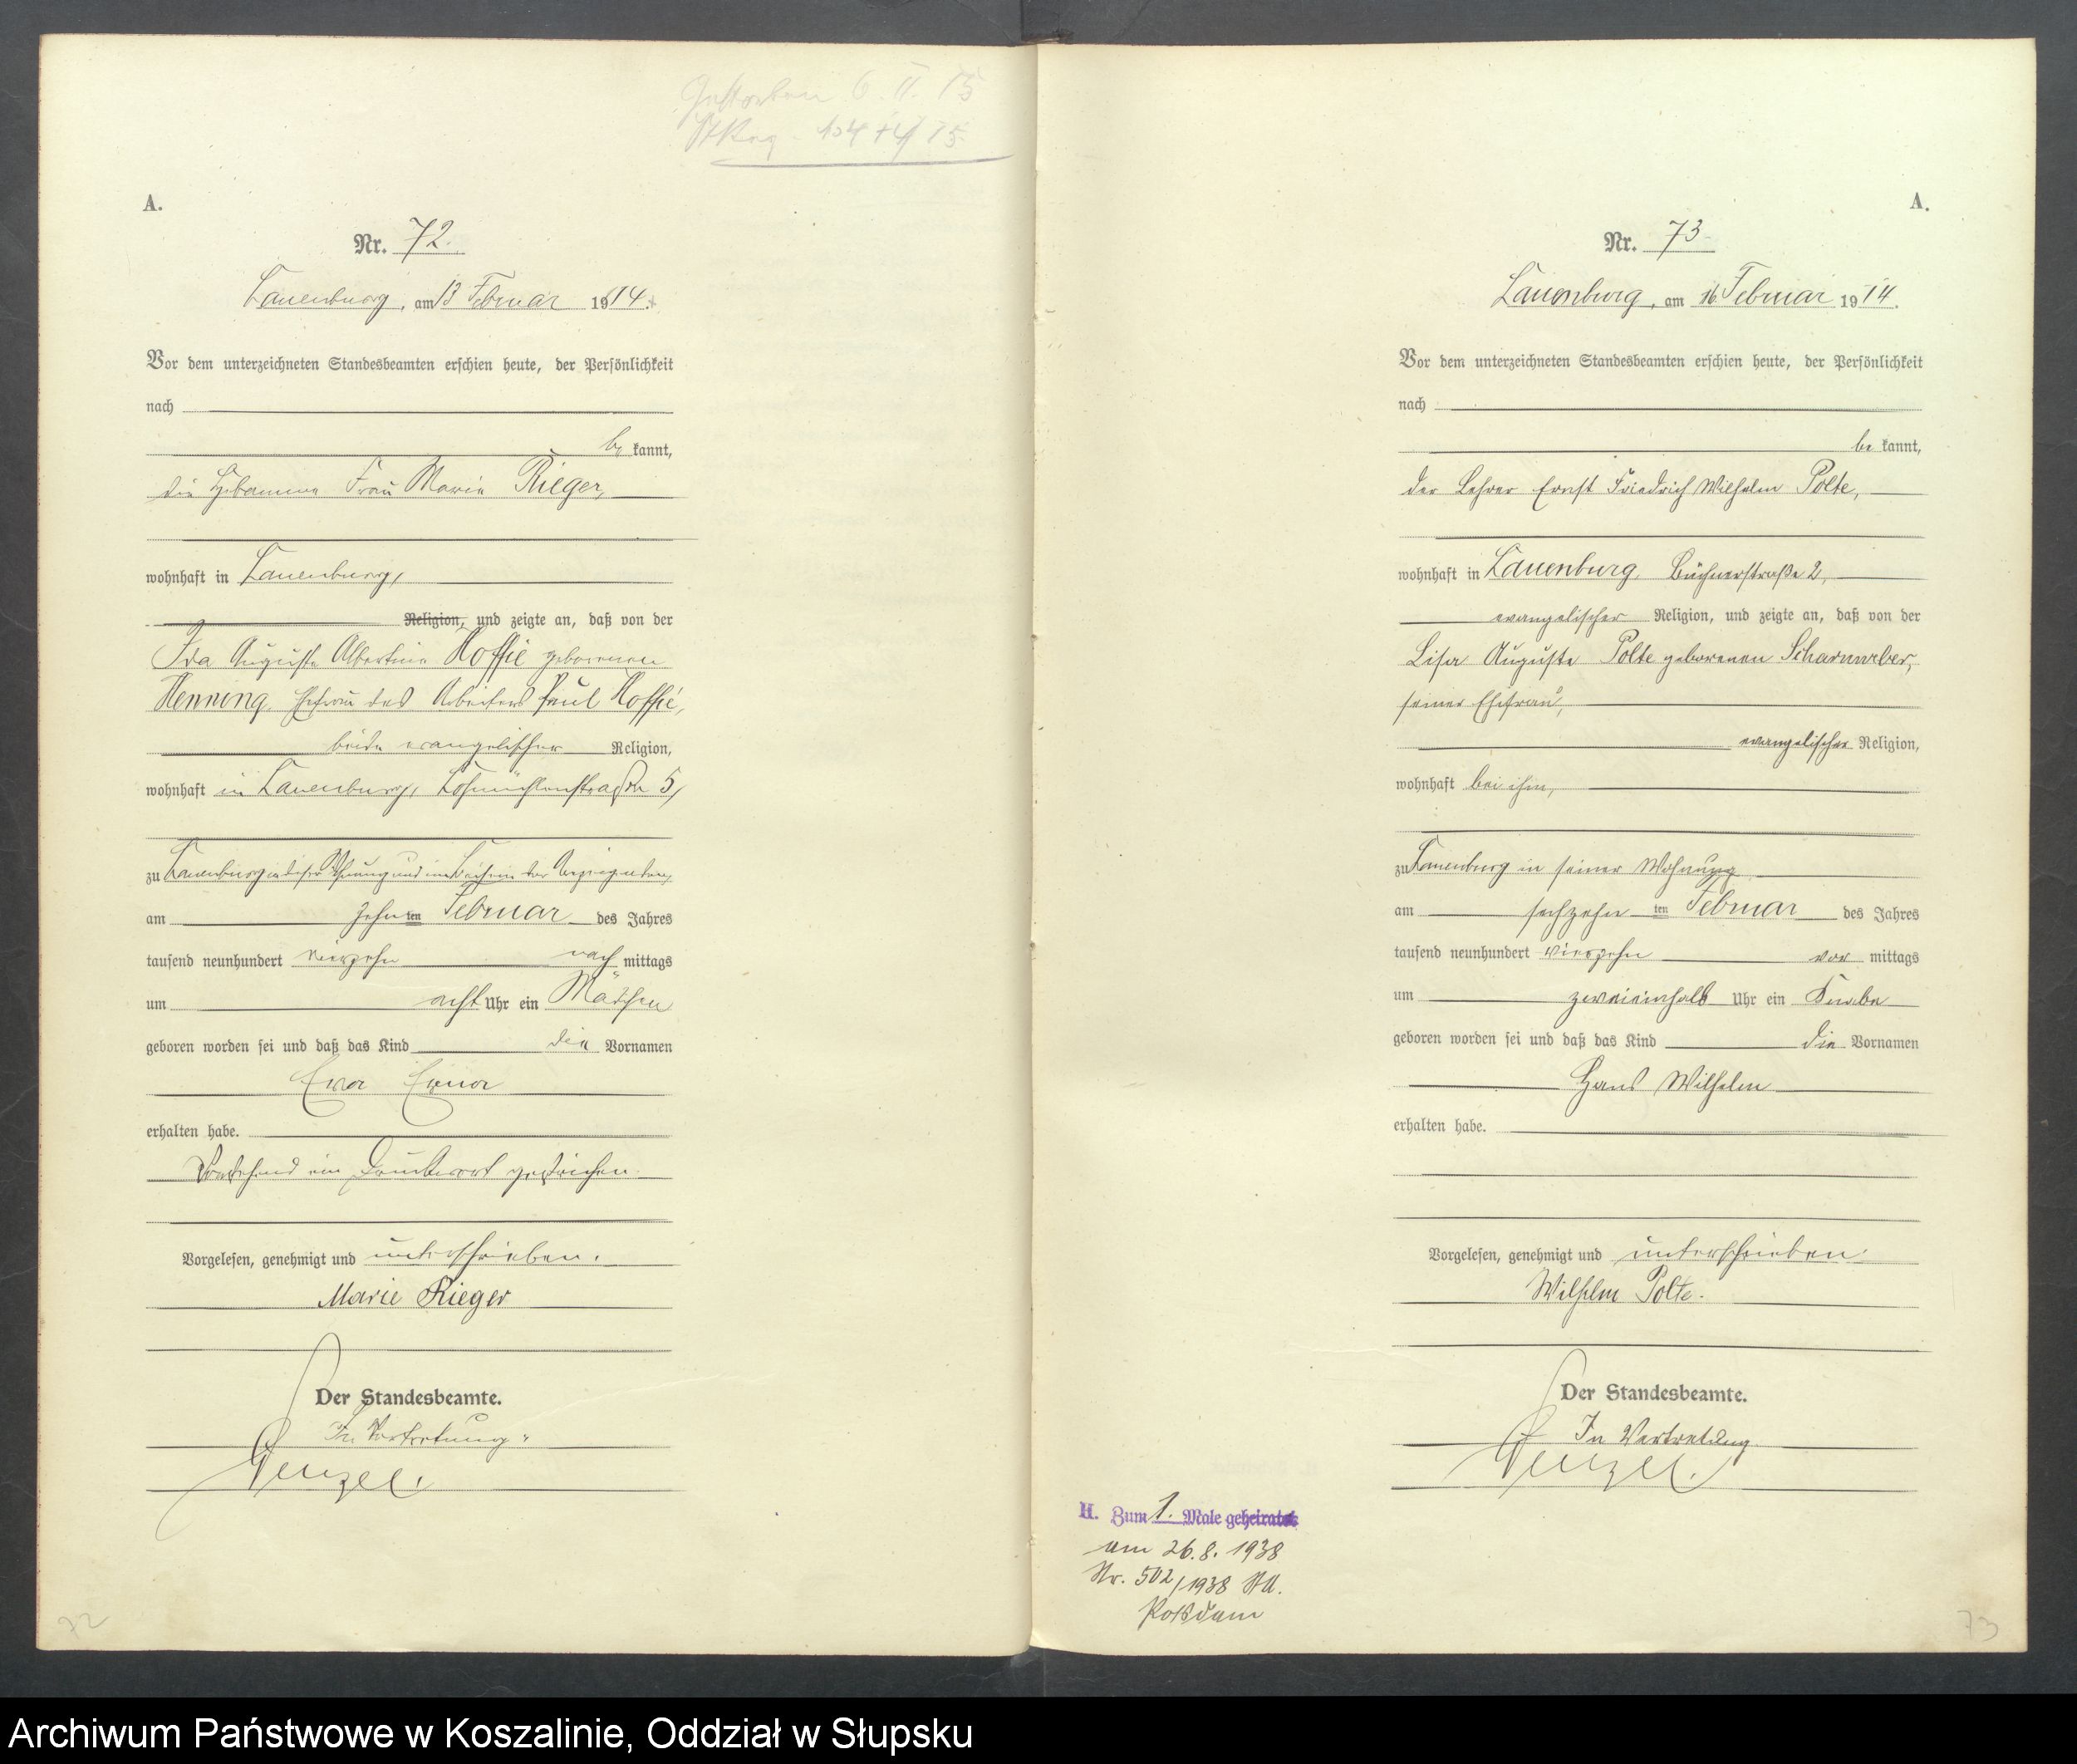 Gestorben 6. II. 15
A.
Nr. 72.
Lauenburg, am 13 Februar 1914.
Vor dem unterzeichneten Standesbeamten erschien heute, der Persönlichkeit
nach
be kannt,
die Hebamme Frau Marie Rieger,
wohnhaft in Lauenburg,
Religion, und zeigte an, daß von der
Ida Auguste Albertine Koffke geborenen
Henning, Ehefrau des Arbeiters Paul Koffke,
beide evangelischer Religion,
wohnhaft in Lauenburg, Lohmühlenstraße 5,
zu Lauenburg in dieser Wohnung und im Beisein der Anzeigenden,
am zehn ten Februar des Jahres
tausend neunhundert vierzehn nach mittags
um acht Uhr ein Mädchen
geboren worden sei und daß das Kind die Vornamen
Eva Erna
erhalten habe.
Vorstehend ein Druckwort gestrichen.
Vorgelesen, genehmigt und unterschrieben.
Marie Rieger
Der Standesbeamte.
In Vertretung.
Wenzel.
72
A.
Nr. 73
Lauenburg, am 16. Februar 1914.
Vor dem unterzeichneten Standesbeamten erschien heute, der Persönlichkeit
nach
be kannt,
der Lehrer Ernst Friedrich Wilhelm Polte,
wohnhaft in Lauenburg, Büchnerstraße 2,
evangelischer Religion, und zeigte an, daß von der
Lisa Auguste Polte geborenen Scharnweber,
seiner Ehefrau,
evangelischer Religion,
wohnhaft bei ihm,
zu Lauenburg in seiner Wohnung
am sechzehn ten Februar des Jahres
tausend neunhundert vierzehn vor mittags
um zweieinhalb Uhr ein Knabe
geboren worden sei und daß das Kind die Vornamen
Hans Wilhelm
erhalten habe.
Vorgelesen, genehmigt und unterschrieben.
Wilhelm Polte.
Der Standesbeamte.
In Vertretung
Wenzel.
H. Zum 1. Male geheiratet
am 26.8.1938
Nr. 502/1938 StA.
Potsdam
73
Archiwum Państwowe w Koszalinie, Oddział w Słupsku